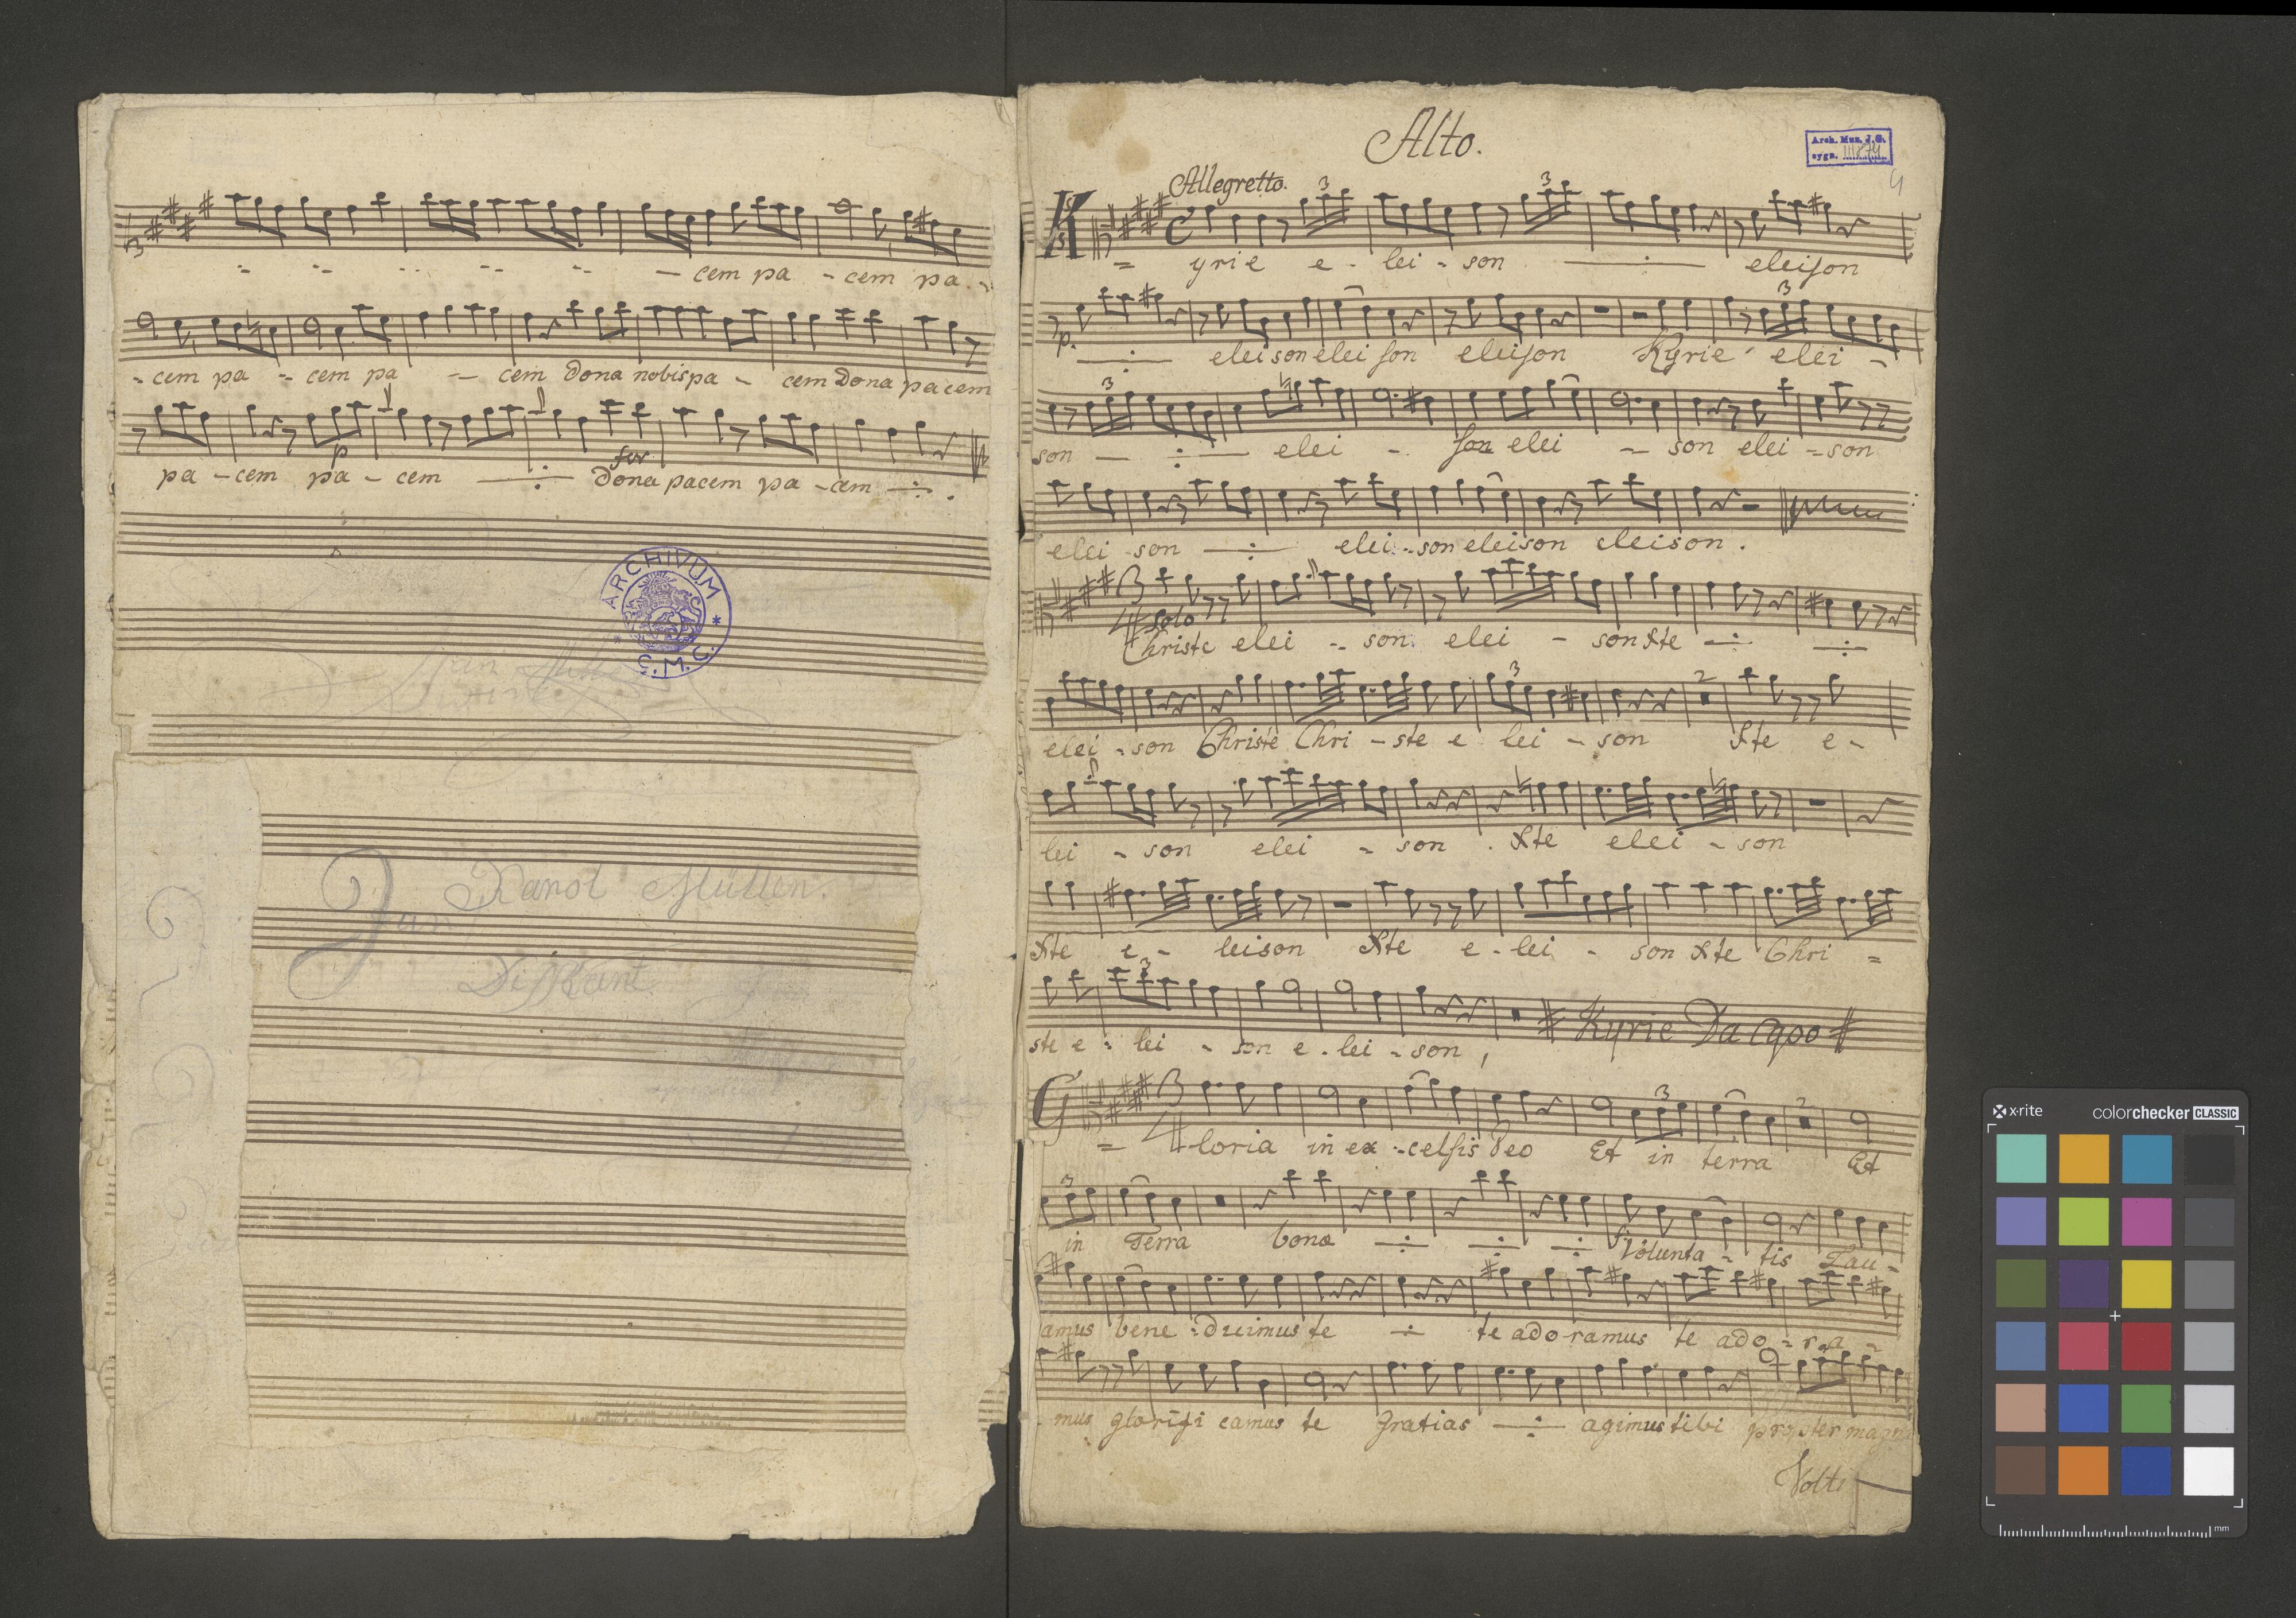 - cem pa - cem pa -
- cem pa - cem pa - cem Dona nobis pa - cem Dona pacem
p
for
pa - cem pa - cem Dona pacem pa - cem
ARCHIVUM
Ś.M.C.
Karol Müller.
Jan
Diskant
Alto.
Arch. Muz. J.G.
sygn. III/874
4
Allegretto.
3 3
K = yrie e - lei - son eleison
p. 3
eleison eleison eleison Kyrie elei -
3
son elei - son elei - son elei - son
elei - son elei - son eleison eleison.
3/4 Solo
Christe elei - son elei - son Xte
3 2
elei - son Christe Chri - ste e lei - son Xte e -
lei - son elei - son. Xte elei - son
Xte e - leison Xte e - lei - son Xte Chri =
3
ste e - lei - son e - lei - son,
Kyrie Da Cpo
3/4 3 2
G = loria in ex - celsis Deo Et in terra Et
3
in Terra bona Volunta - tis Lau -
amus bene - dicimus te te adoramus te ado - ra -
- mus glorifi camus te Gratias agimus tibi propter magna
Volti
x·rite
colorchecker CLASSIC
mm